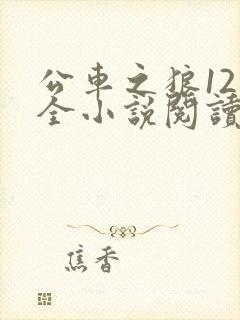 公車之狼12
全小說閱讀
焦香